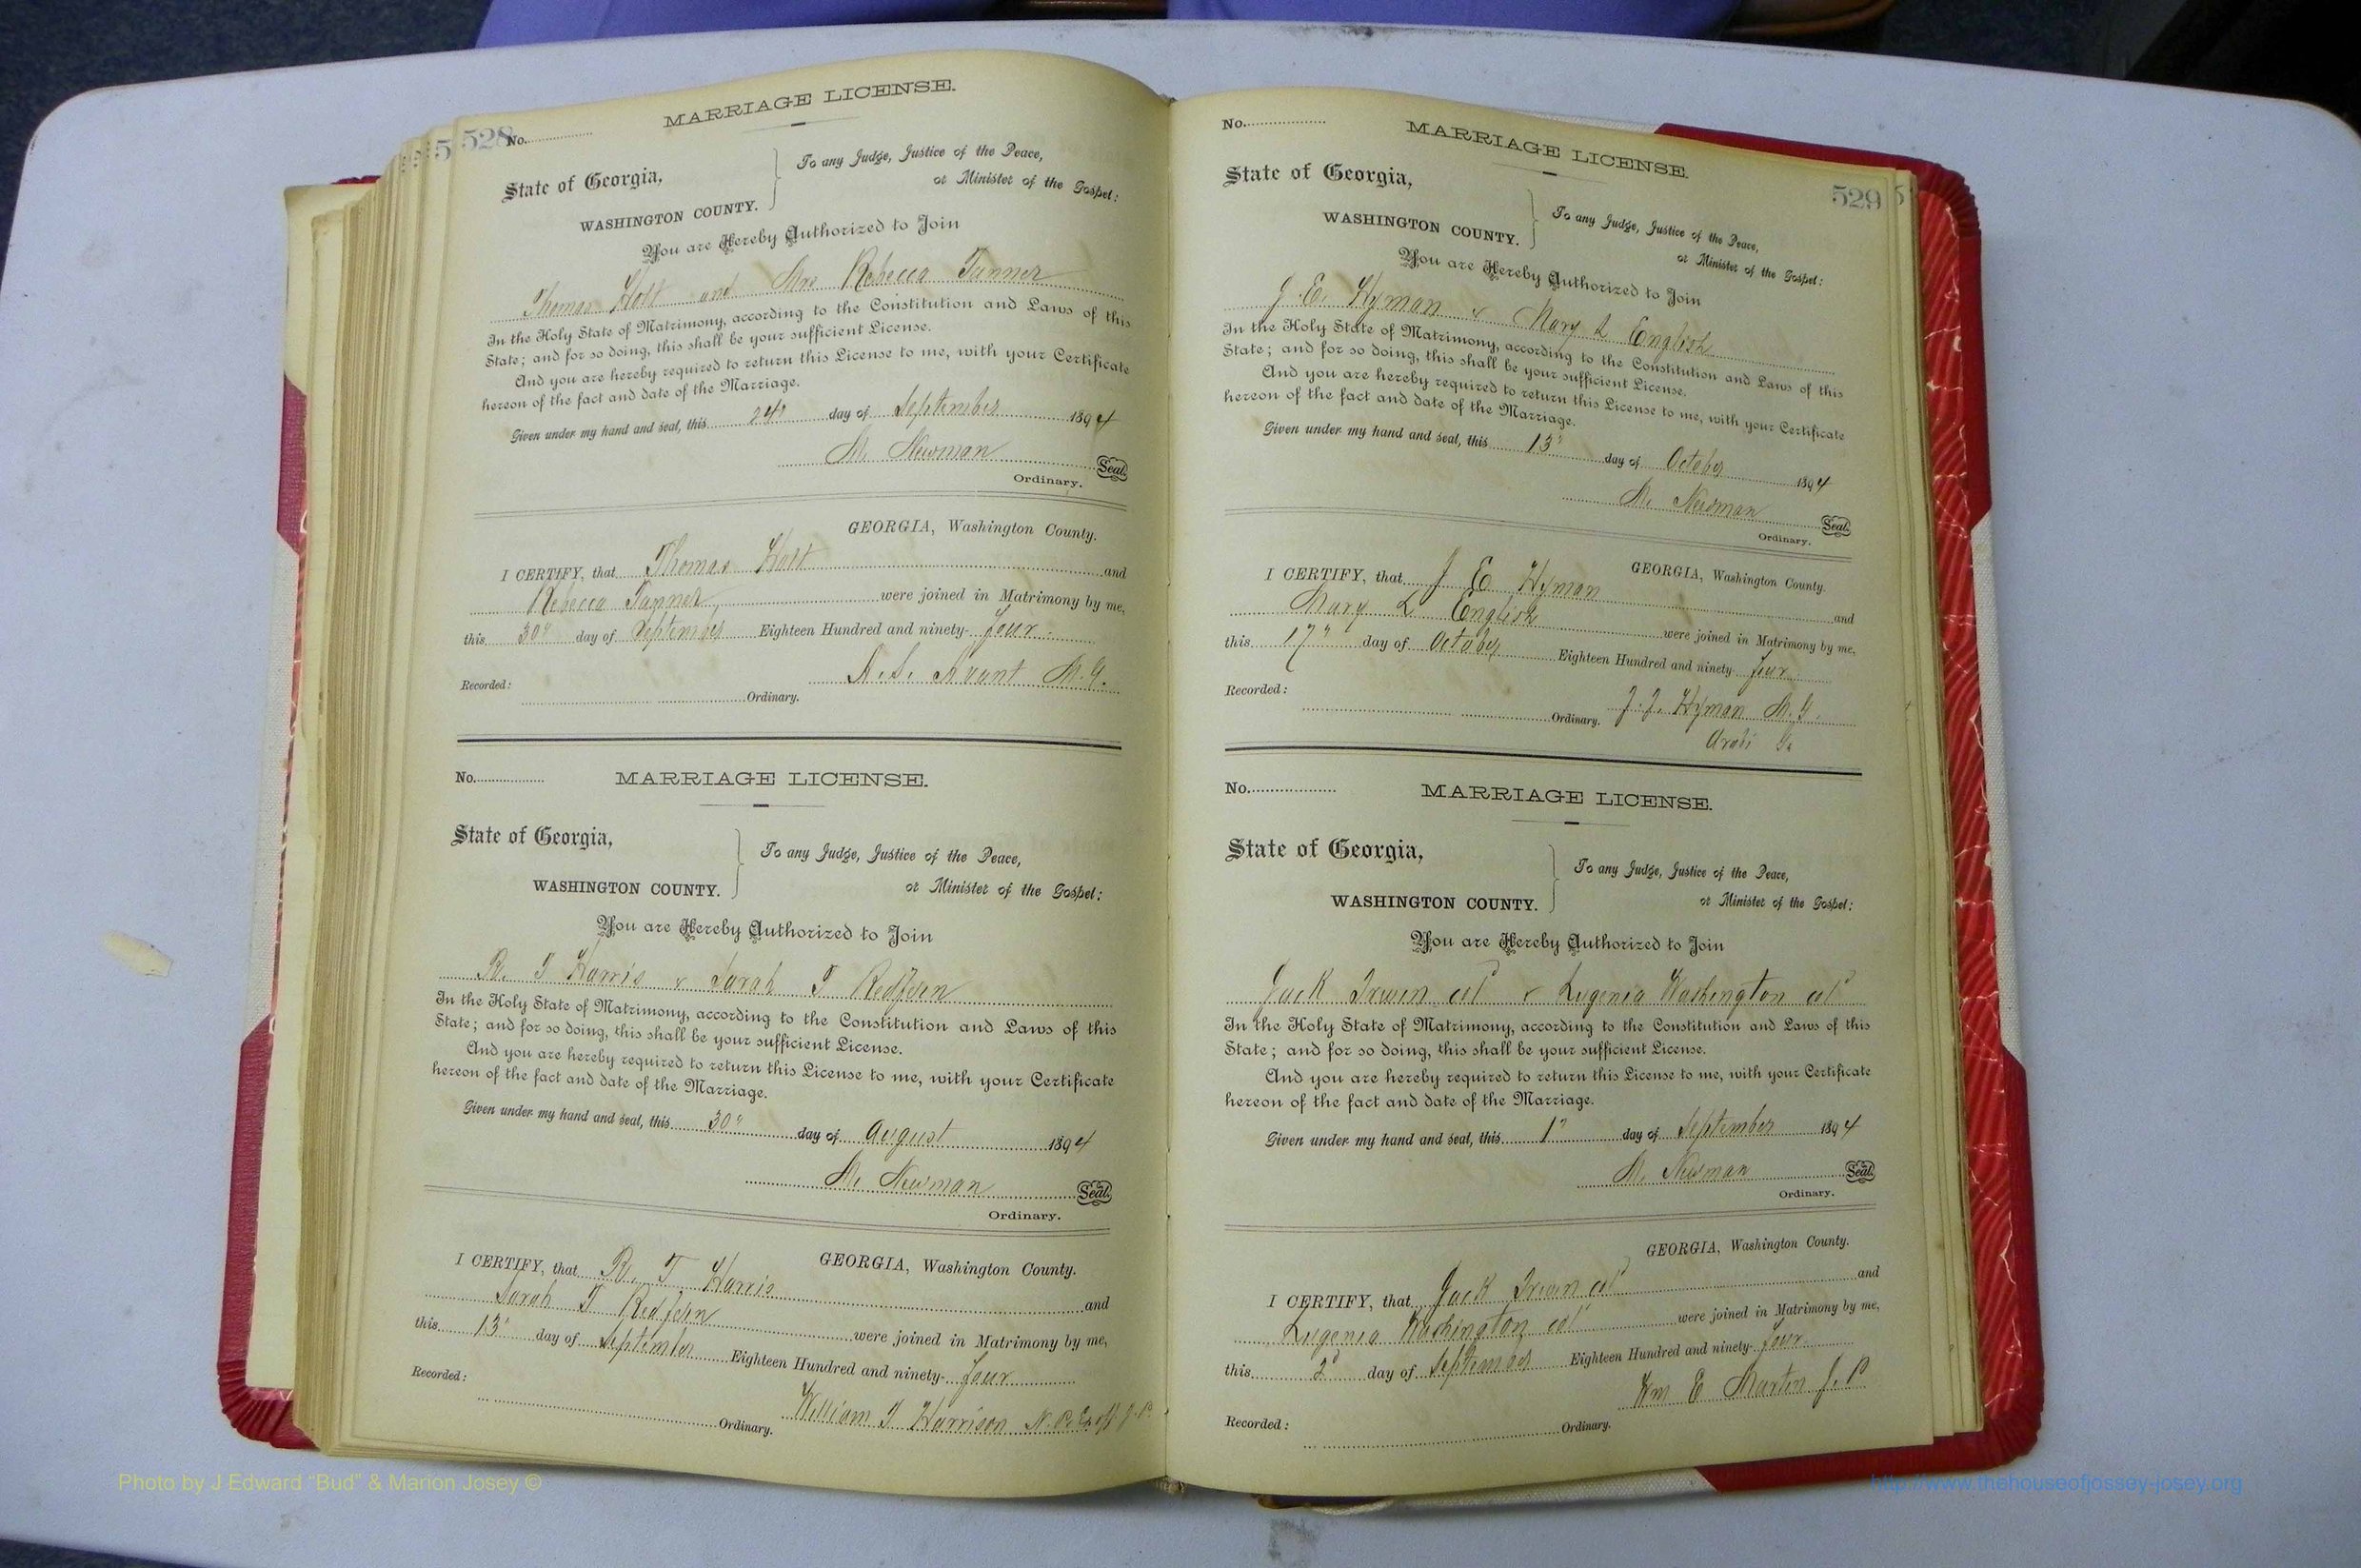 528
No.
MARRIAGE LICENSE.
State of Georgia,
WASHINGTON COUNTY.
To any Judge, Justice of the Peace,
or Minister of the Gospel:
You are Hereby Authorized to Join
Thomas Holt and Mrs Rebecca Tanner
In the Holy State of Matrimony, according to the Constitution and Laws of this
State; and for so doing, this shall be your sufficient License.
And you are hereby required to return this License to me, with your Certificate
hereon of the fact and date of the Marriage.
Given under my hand and seal, this 24" day of September 1894
M. Newman Seal.
Ordinary.
GEORGIA, Washington County.
I CERTIFY, that Thomas Holt and
Rebecca Tanner were joined in Matrimony by me,
this 30" day of September Eighteen Hundred and ninety- four
Avant M.G.
Recorded: Ordinary.
No.
MARRIAGE LICENSE.
State of Georgia,
WASHINGTON COUNTY.
To any Judge, Justice of the Peace,
or Minister of the Gospel:
You are Hereby Authorized to Join
R. T Harris & Sarah T Redfern
In the Holy State of Matrimony, according to the Constitution and Laws of this
State; and for so doing, this shall be your sufficient License.
And you are hereby required to return this License to me, with your Certificate
hereon of the fact and date of the Marriage.
Given under my hand and seal, this 30" day of August 1894
M. Newman Seal.
Ordinary.
GEORGIA, Washington County.
I CERTIFY, that R. T Harris and
Sarah T Redfern were joined in Matrimony by me,
this 13" day of September Eighteen Hundred and ninety- four
William T Harrison N.P. & Ex off J.P.
Recorded: Ordinary.
No.
MARRIAGE LICENSE.
529
State of Georgia,
WASHINGTON COUNTY.
To any Judge, Justice of the Peace,
or Minister of the Gospel:
You are Hereby Authorized to Join
J. E. Hyman & Mary L English
In the Holy State of Matrimony, according to the Constitution and Laws of this
State; and for so doing, this shall be your sufficient License.
And you are hereby required to return this License to me, with your Certificate
hereon of the fact and date of the Marriage.
Given under my hand and seal, this 13" day of October 1894
M. Newman Seal.
Ordinary.
GEORGIA, Washington County.
I CERTIFY, that J E Hyman and
Mary L English were joined in Matrimony by me,
this 17" day of October Eighteen Hundred and ninety four
J. J. Hyman M.G.
Recorded: Ordinary.
Arabi Ga
No.
MARRIAGE LICENSE.
State of Georgia,
WASHINGTON COUNTY.
To any Judge, Justice of the Peace,
or Minister of the Gospel:
You are Hereby Authorized to Join
Jack Irwin col & Lugenia Washington col
In the Holy State of Matrimony, according to the Constitution and Laws of this
State; and for so doing, this shall be your sufficient License.
And you are hereby required to return this License to me, with your Certificate
hereon of the fact and date of the Marriage.
Given under my hand and seal, this 1" day of September 1894
M. Newman Seal.
Ordinary.
GEORGIA, Washington County.
I CERTIFY, that Jack Irwin col and
Lugenia Washington col were joined in Matrimony by me,
this 2d day of September Eighteen Hundred and ninety- four
Wm E Martin J. P
Recorded: Ordinary.
Photo by J Edward "Bud" & Marion Josey ©
http://www.thehouseofjossey-josey.org